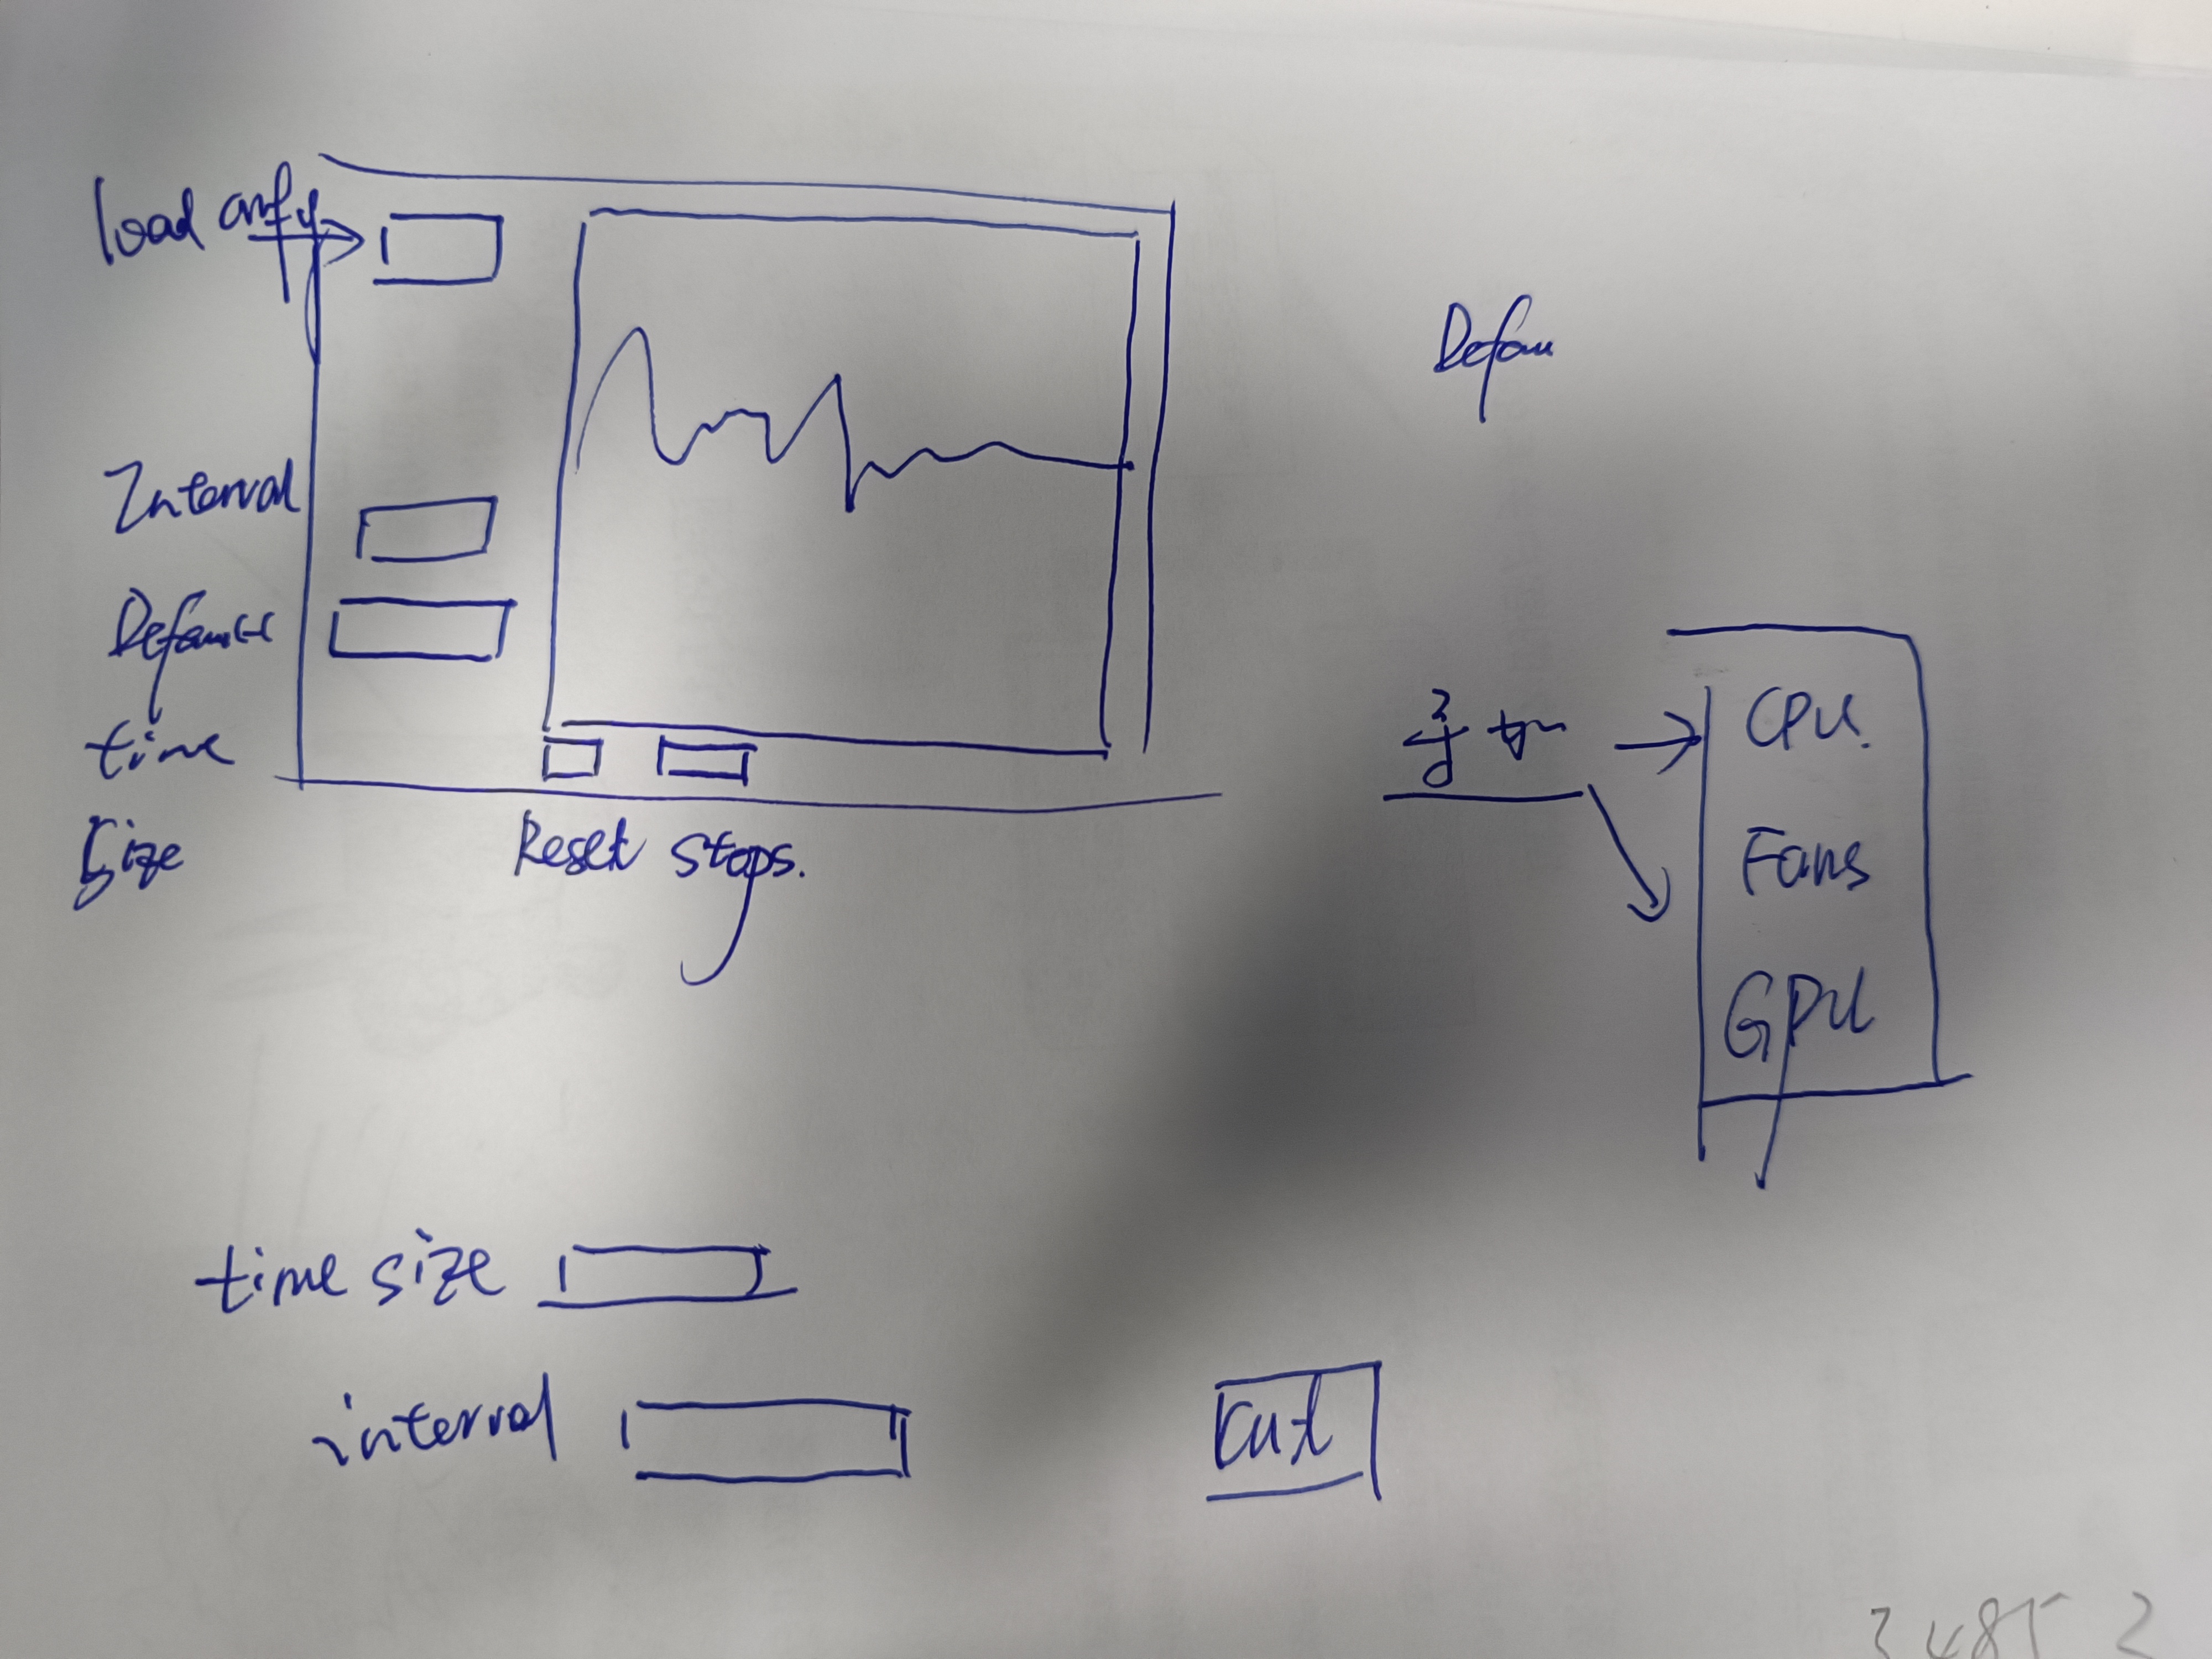 load config
Interval
Default
time
Size
Reset stops.
Defau
CPU.
Fans
GPU
time size
interval